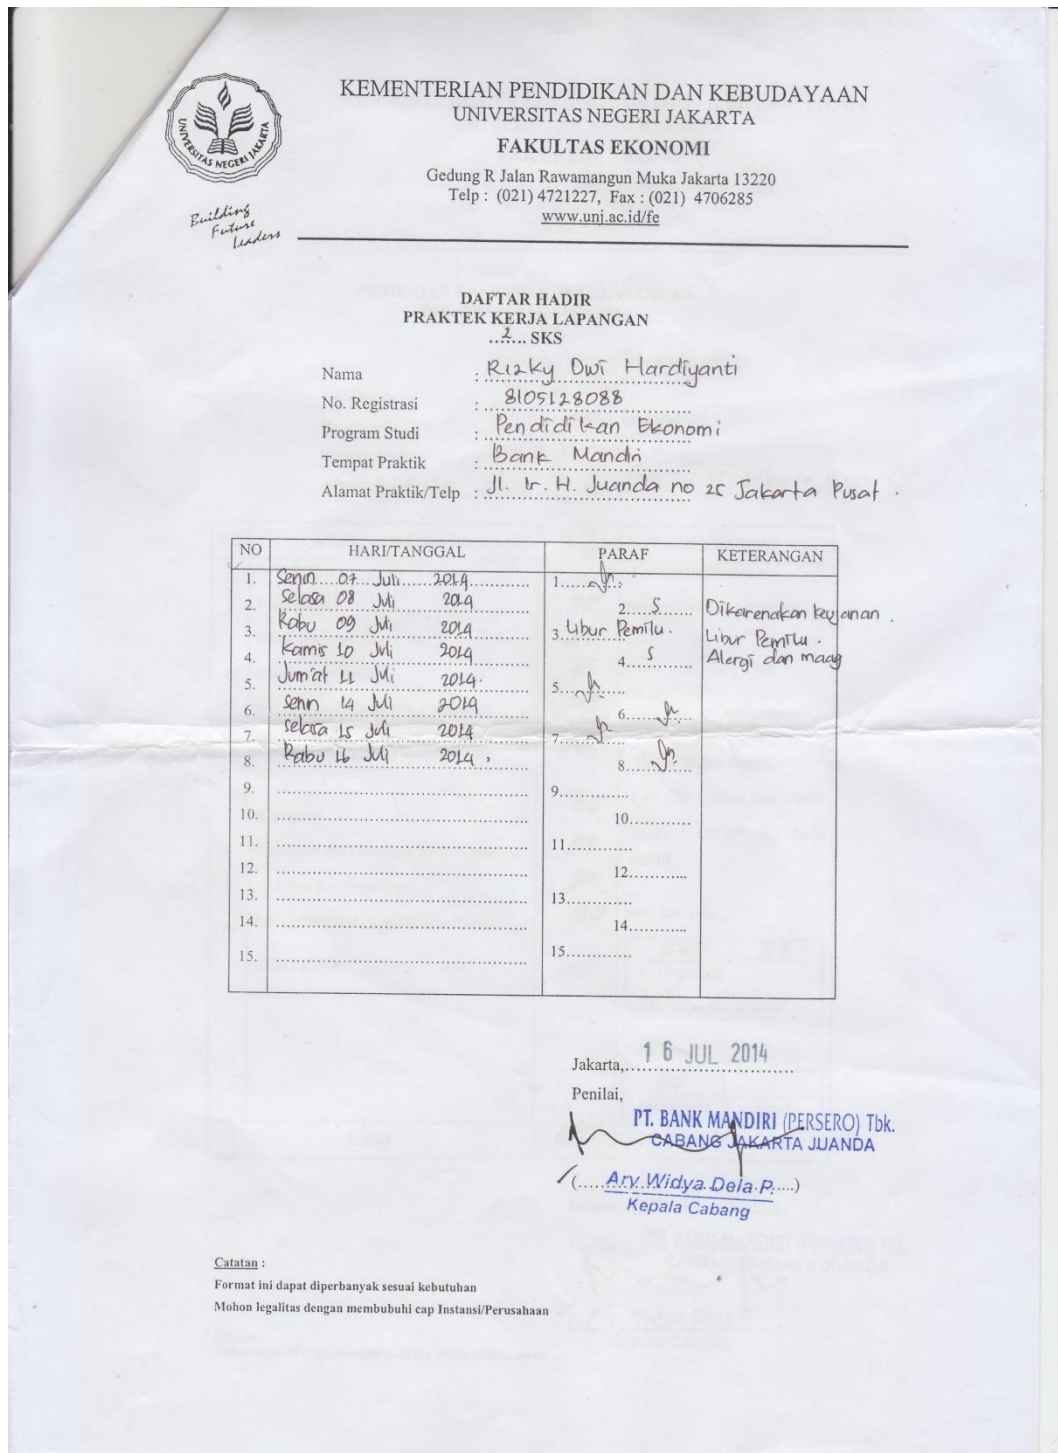 KEMENTERIAN PENDIDIKAN DAN KEBUDAYAAN
UNIVERSITAS NEGERI JAKARTA
FAKULTAS EKONOMI
Gedung R Jalan Rawamangun Muka Jakarta 13220
Telp : (021) 4721227, Fax : (021) 4706285
www.unj.ac.id/fe
UNIVERSITAS NEGERI JAKARTA
Building
Future
Leaders
DAFTAR HADIR
PRAKTEK KERJA LAPANGAN
...2... SKS
Nama : Rizky Dwi Hardiyanti
No. Registrasi : 8105128088
Program Studi : Pendidikan Ekonomi
Tempat Praktik : Bank Mandiri
Alamat Praktik/Telp : Jl. Ir. H. Juanda no 25 Jakarta Pusat .
NO HARI/TANGGAL PARAF KETERANGAN
1. Senin 07 Juli 2014 1.
2. Selasa 08 Juli 2014 2. S Dikarenakan
3. Rabu 09 Juli 2014 3. Libur Pemilu. Libur Pemilu.
4. Kamis 10 Juli 2014 4. S Alergi dan maag
5. Jum'at 11 Juli 2014. 5.
6. Senin 14 Juli 2014 6.
7. Selasa 15 Juli 2014 7.
8. Rabu 16 Juli 2014. 8.
9. 9.
10. 10.
11. 11.
12. 12.
13. 13.
14. 14.
15. 15.
Jakarta, 16 JUL 2014
Penilai,
PT. BANK MANDIRI (PERSERO) Tbk.
CABANG JAKARTA JUANDA
(.....Ary Widya Dela P.....)
Kepala Cabang
Catatan :
Format ini dapat diperbanyak sesuai kebutuhan
Mohon legalitas dengan membubuhi cap Instansi/Perusahaan